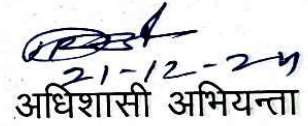 21-12-24
अधिशासी अभियन्ता